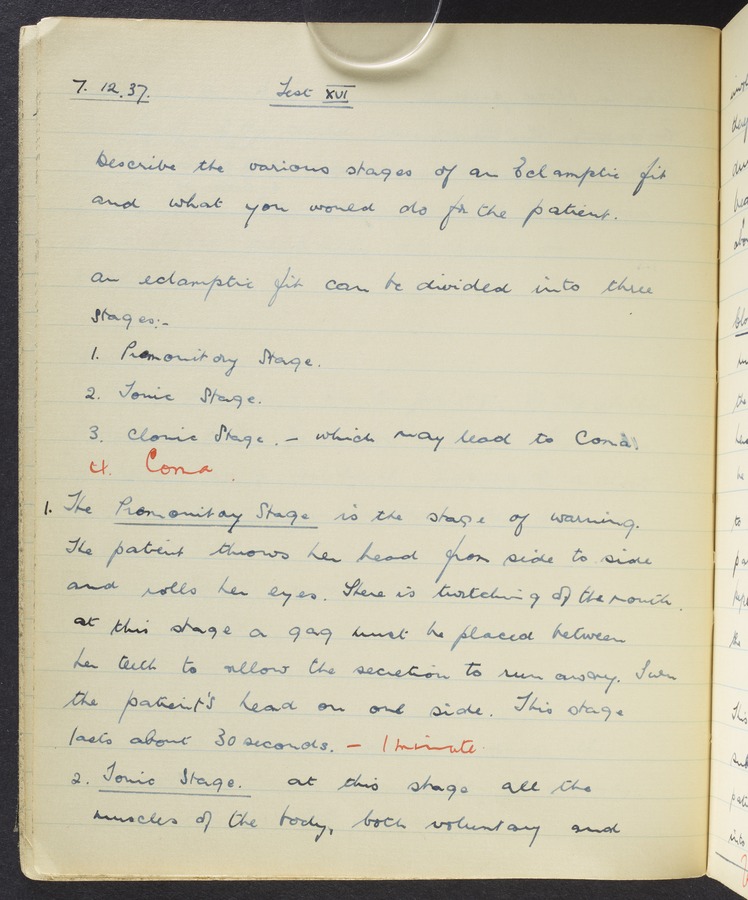 7. 12. 37. Test XVI
Describe the various stages of an Eclamptic fit
and what you would do for the patient.
an eclamptic fit can be divided into three
stages:-
1. Premonitory Stage.
2. Tonic Stage.
3. Clonic Stage. - which may lead to Coma.
4. Coma.
1. The Premonitory Stage is the stage of warning.
The patient throws her head from side to side
and rolls her eyes. There is twitching of the mouth.
at this stage a gag must be placed between
her teeth to allow the secretion to run away. Turn
the patient's head on one side. This stage
lasts about 30 seconds. - 1 minute.
2. Tonic Stage. at this stage all the
muscles of the body, both voluntary and